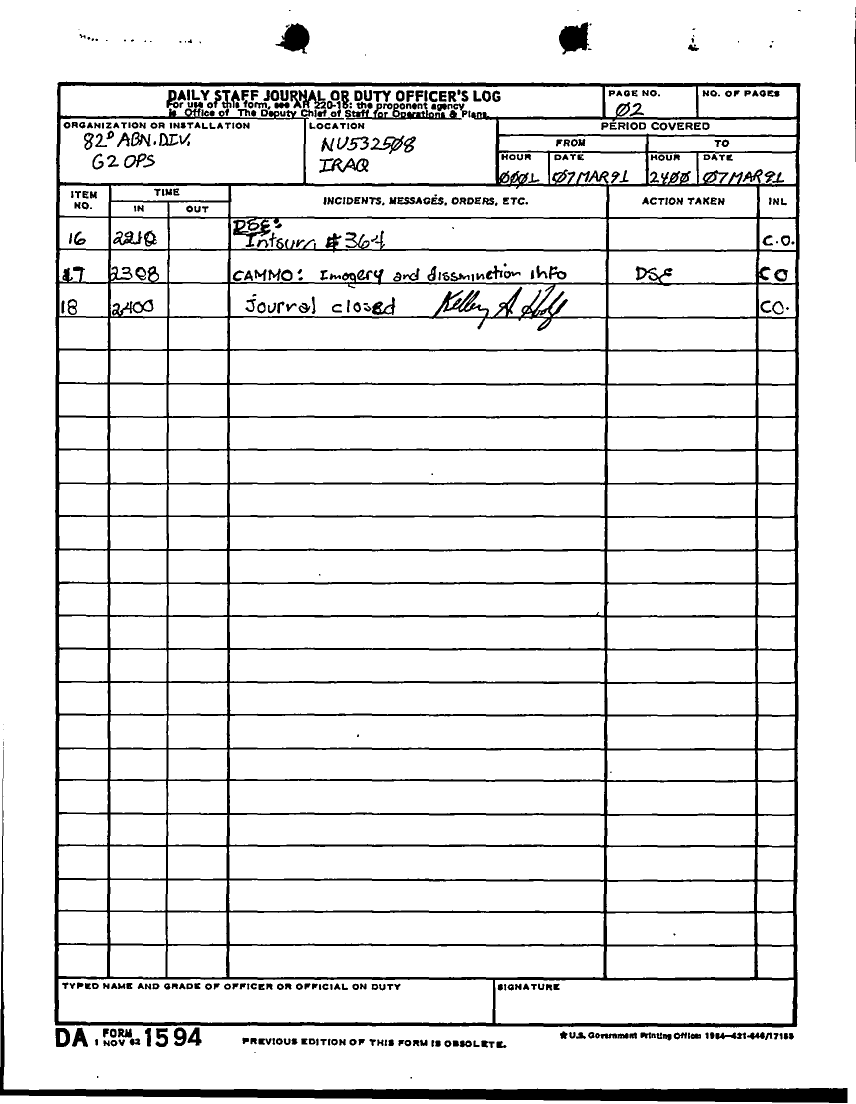 DAILY STAFF JOURNAL OR DUTY OFFICER'S LOG
For use of this form, see AR 220-15; the proponent agency
is Office of The Deputy Chief of Staff for Operations & Plans.
PAGE NO.
02
NO. OF PAGES
ORGANIZATION OR INSTALLATION
82D ABN. DIV.
G2 OPS
LOCATION
NU532508
IRAQ
PERIOD COVERED
FROM TO
HOUR DATE HOUR DATE
0001 07MAR91 2400 07MAR91
ITEM NO. TIME IN OUT INCIDENTS, MESSAGES, ORDERS, ETC. ACTION TAKEN INL
DSE:
16 2210 Intsum #364 C.O.
17 2308 CAMMO: Imagery and dissminetion info DSE CO
18 2400 Journal closed Kelley A CO.
TYPED NAME AND GRADE OF OFFICER OR OFFICIAL ON DUTY SIGNATURE
DA FORM 1 NOV 62 1594 PREVIOUS EDITION OF THIS FORM IS OBSOLETE. ★U.S. Government Printing Office: 1984-421-646/17155